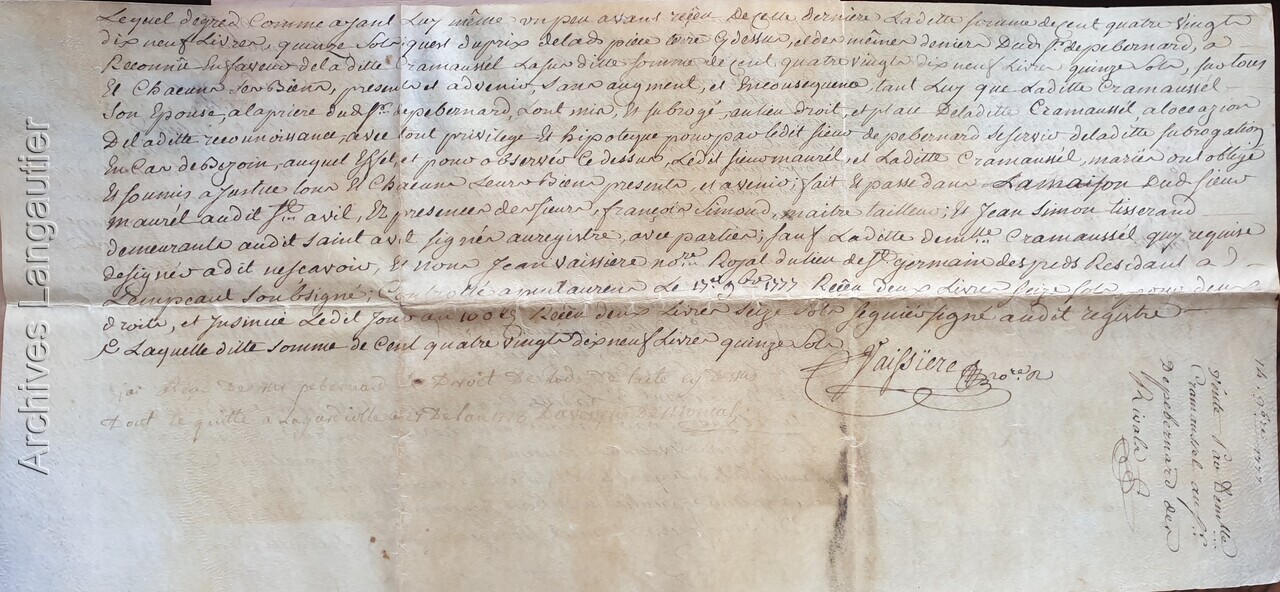 Lequel degred Comme ayant Luy même un peu avant reçeu De cette derniere Laditte somme de cent quatre vingt
dix neuf Livres, quinze Sols, quest du prix delad. piece terre Cy dessus, et des mêmes deniers Dud. Sr. de pebernard, a
Reconnüe En faveur de laditte Cramaussel La susditte Somme de cent, quatre vingts dix neuf Livres quinze Sols, sur tous
Et Chacuns Ses Biens, presents et advenir, Sans augment, et En consequence tant Luy que Laditte Cramaussel
Son Epouse, a la priere dud. Sr. de pebernard, L'ont mis, Et Subrogé, au lieu droit, et place De laditte Cramaussel, a l'occazion
De laditte reconnoissance, avec tout privilege Et hipoteque pour par ledit Sieur de pebernard se servir de laditte Subrogation
En Cas de Bezoin, auquel Effet, et pour observer Ce dessus, Ledit Sieur maurel, et Laditte Cramaussel, mariés ont obligé
Et Soumis a Justice tous Et Chacuns Leurs Biens presents, et avenir; fait Et passé dans La maison Dud. Sieur
Maurel audit St. avit, Ez presences des Sieurs, françois Simond, maitre tailleur; Et Jean Simon tisserand
demeurants audit Saint avit Signés au registre, avec parties; Sauf Laditte demlle. Cramaussel quy requise
de signer a dit ne scavoir, Et Nous Jean Vaissiere nore. Royal du lieu de St. Germain des preds Residant a
Lempeaut Soubsigné; Controllé a puilaurens Le 17e. 9bre 1777 Reçeu deux Livres Seize Sols
droits, et Insinué Ledit Jour au 100e Reçeu deux Livres Seize Sols Seguier Signé audit registre
Laquelle ditte somme de Cent quatre vingts dix neuf Livres quinze Sols
Vaissiere nore.
J'ai Reçu De Mr. pebernard le Droit De Lods De L'acte cy Dessus
Dont le quitte a Lagardiolle
14e. 9bre 1777
Vente Par Demlle
Cramaussel au Sr.
De pebernard des
Rivals
Archives Langautier